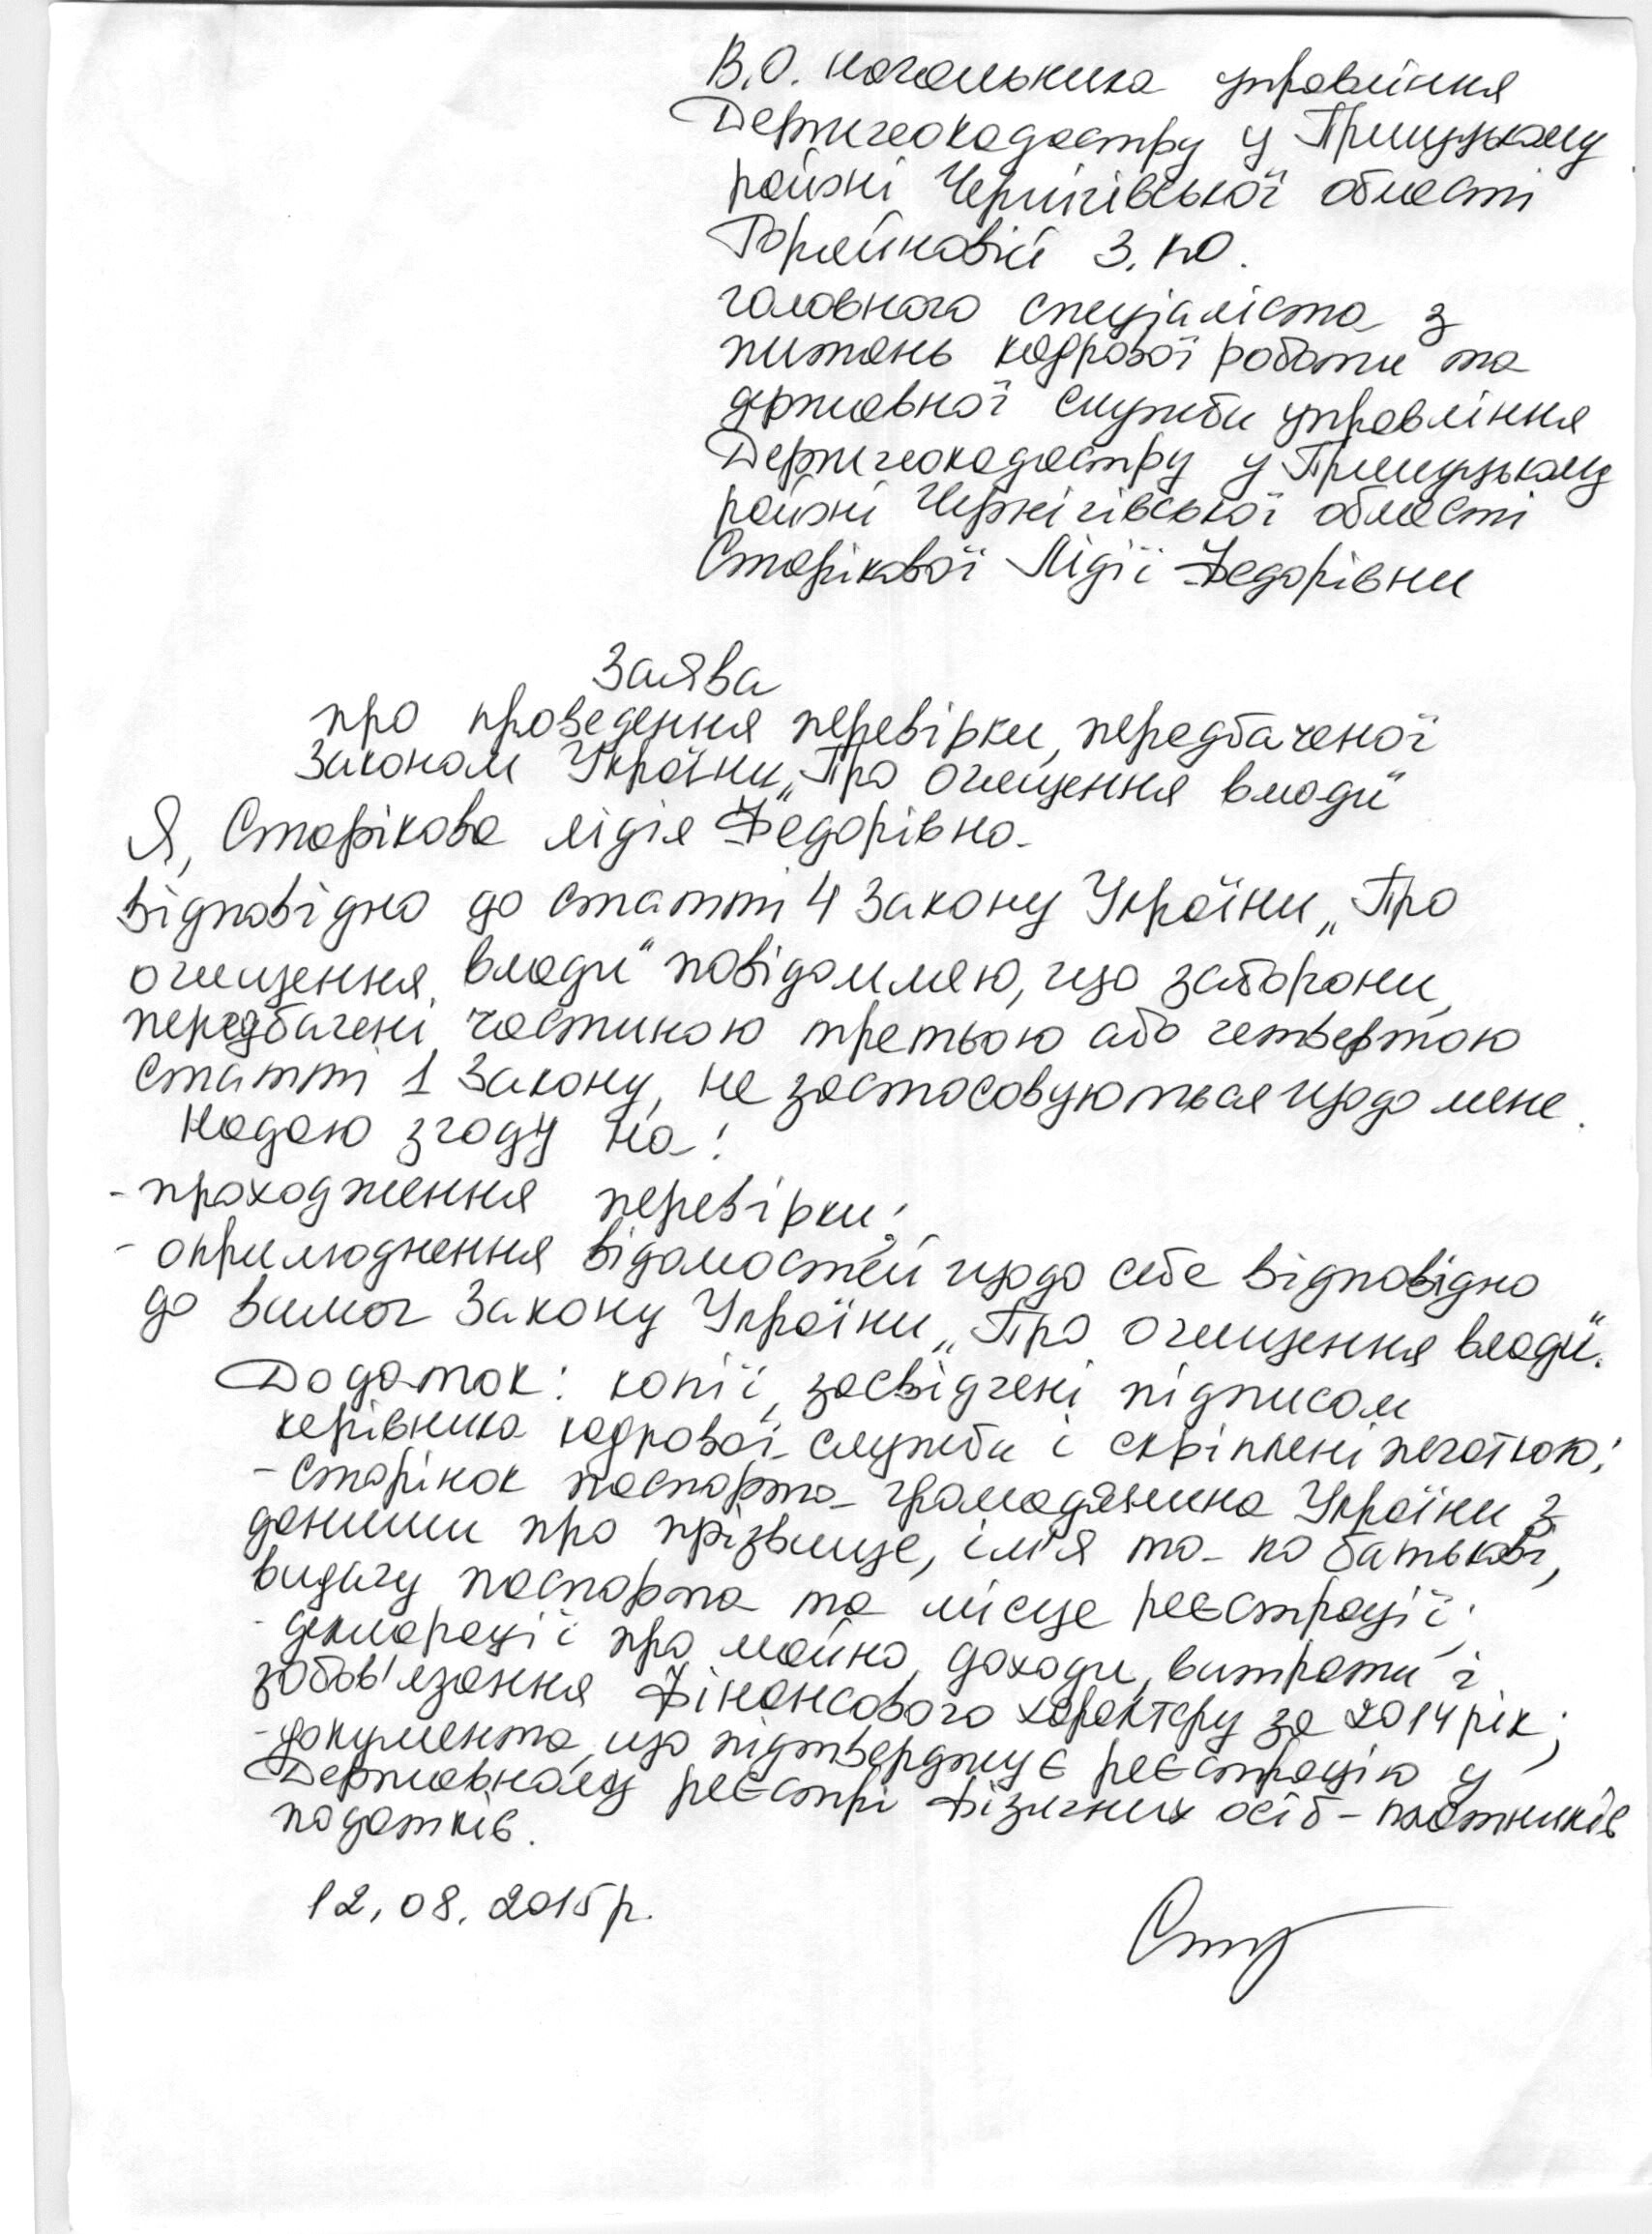 В.О. начальника управління
Держгеокадастру у Прилуцькому
районі Чернігівської області
З.Ю.
головного спеціаліста з
питань кадрової роботи та
державної служби управління
Держгеокадастру у Прилуцькому
районі Чернігівської області
Старікової Лідії Федорівни
Заява
про проведення перевірки, передбаченої
Законом України „Про очищення влади"
Я, Старікова Лідія Федорівна.
відповідно до статті 4 Закону України „Про
очищення влади" повідомляю, що заборони,
передбачені частиною третьою або четвертою
статті 1 Закону, не застосовуються щодо мене.
Надаю згоду на:
- проходження перевірки;
- оприлюднення відомостей щодо себе відповідно
до вимог Закону України „Про очищення влади".
Додаток: копії, засвідчені підписом
керівника кадрової служби і скріплені печаткою:
- сторінок паспорта громадянина України з
даними про прізвище, ім'я та по батькові,
видачу паспорта та місце реєстрації;
- декларації про майно, доходи, витрати і
зобов'язання фінансового характеру за 2014 рік;
- документа, що підтверджує реєстрацію у
Державному реєстрі фізичних осіб - платників
податків.
12.08.2015 р.